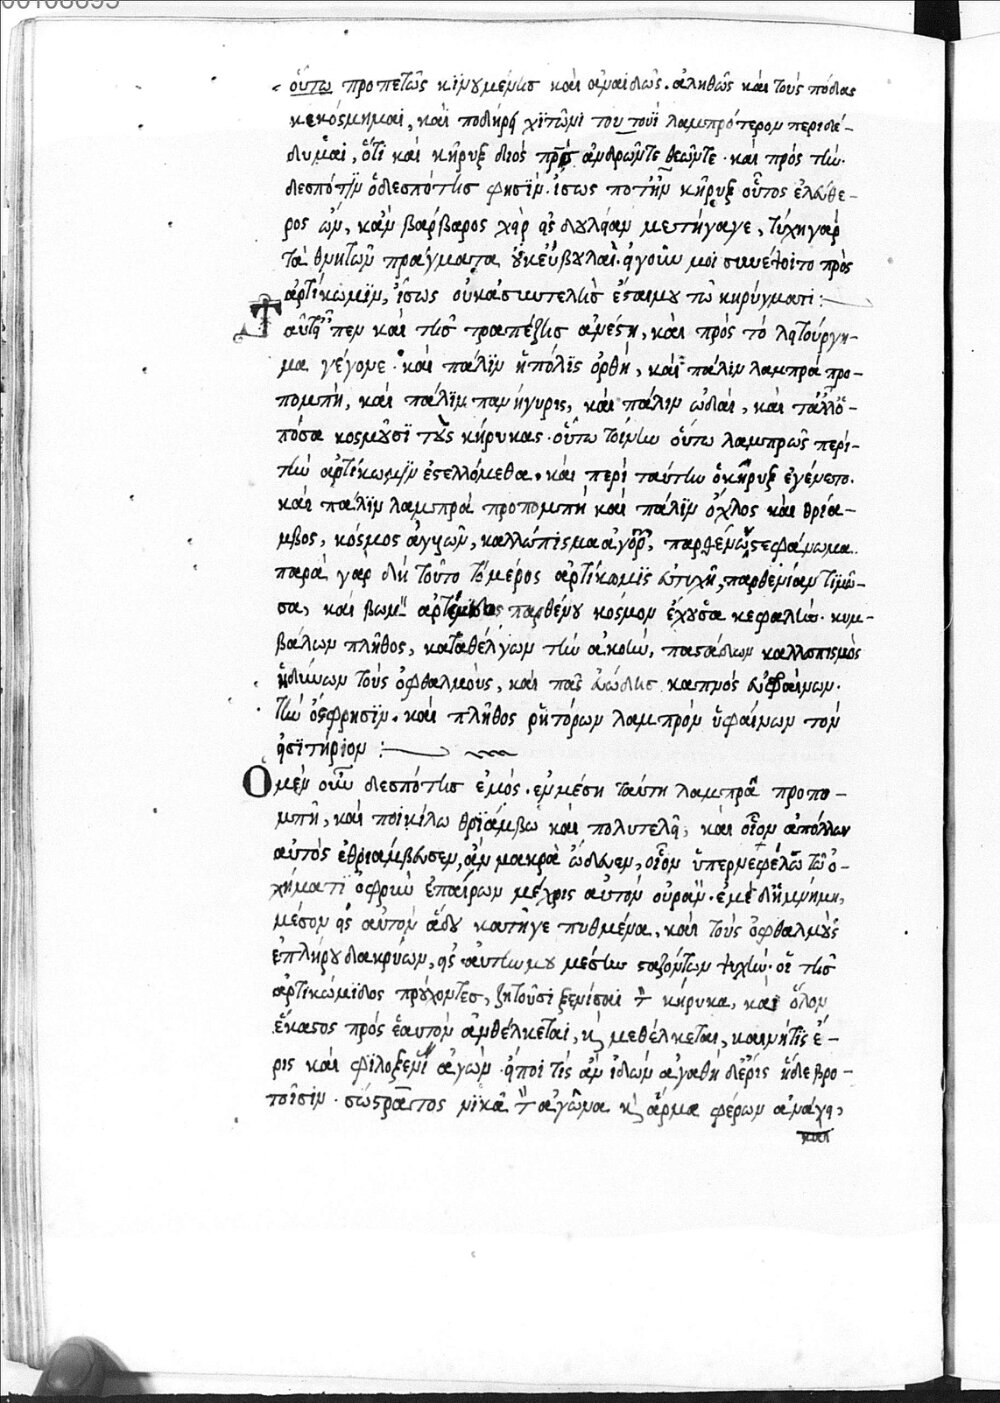 οὕτω προπετῶς κινουμένης καὶ ἀναιδῶς. ἀληθῶς καὶ τοὺς πόδας
κεκόσμημαι, καὶ ποδήρη χιτῶνι τουτουῒ λαμπρότερον περιδέ-
δυμαι, ὅτι καὶ κῆρυξ διὸς πρὸς ἀνδρῶντε θεῶντε. καὶ πρὸς τὴν
δεσπότιν ὁ δεσπότης φησίν. ἴσως ποτ' ἦν κῆρυξ οὗτος ἐλεύθε-
ρος ὤν, κἂν βάρβαρος χεὶρ εἰς δουλείαν μετήγαγε, τύχη γὰρ
τὰ θνητῶν πράγματα οὐκ εὐβουλία. εἰ γοῦν μοι συνέποιτο πρὸς
ἀρτύκωμιν, ἴσως οὐκ ἀσυντελὴς ἔσται μου τῷ κηρύγματι :
Ταῦτ' εἶπεν καὶ τῆς τραπέζης ἀνέστη, καὶ πρὸς τὸ λειτούργη-
μα γέγονε. καὶ πάλιν ἡ πόλις ὀρθὴ, καὶ πάλιν λαμπρὰ προ-
πομπὴ, καὶ πάλιν πανήγυρις, καὶ πάλιν ᾠδαὶ, καὶ τἆλλ' ὁ-
πόσα κοσμοῦσι τοὺς κήρυκας. οὕτω τοίνυν οὕτω λαμπρῶς περὶ
τὴν ἀρτύκωμιν ἐστελλόμεθα. καὶ περὶ ταύτην ὁ κῆρυξ ἐγένετο.
καὶ πάλιν λαμπρὰ προπομπὴ καὶ πάλιν ὄχλος καὶ θρία-
μβος, κόσμος ἀγυιῶν, καλλώπισμα ἀγορῶν, παρθένων στεφάνωμα.
παρὰ γὰρ δὴ τοῦτο τὸ μέρος ἀρτύκωμις εὐτυχεῖ, παρθενίαν τιμῶ-
σα, καὶ βωμὸν ἀρτέμιδος παρθένου κόσμον ἔχουσα κεφαλὴν. κυμ-
βάλων πλῆθος, καταθέλγων τὴν ἀκοὴν, παστάδων καλλωπισμὸς
ἡδύνων τοὺς ὀφθαλμοὺς, καὶ πᾶς εὐώδης καπνὸς εὐφραίνων
τὴν ὄσφρησιν. καὶ πλῆθος ῥητόρων λαμπρὸν ὑφαίνων τὸν
εἰσιτήριον :
Ὁ μὲν οὖν δεσπότης ἐμὸς. ἐν μέση ταύτη λαμπρᾶ προπο-
μπῆ, καὶ ποικίλω θριάμβω καὶ πολυτελεῖ, καὶ οἷον ἀπόλλων
αὐτὸς ἐθριάμβευσεν, ἂν μακρὰ ὤδευεν, οἷον ὑπερνεφέλω τῶ ὀ-
χήματι ὀφρὺν ἐπαίρων μέχρις αὐτὸν οὐρανὸν. ἐμὲ δ' ἡ μνήμη,
μέσον εἰς αὐτὸν ἅδου κατῆγε πυθμένα, καὶ τοὺς ὀφθαλμοὺς
ἐπλήρου δακρύων, εἰς αὐτὴν μου μέσην σταζόντων ψυχὴν. οἱ τῆς
ἀρτικώμιδος προὔχοντες, ζητοῦσι ξενίσαι τὸν κήρυκα, καὶ ὅλον
ἕκαστος πρὸς ἑαυτὸν ἀνθέλκεται, κ μεθέλκεται, καὶ μήτις ἔ-
ρις καὶ φιλοξενίας ἀγὼν. εἴποι τὶς ἂν ἰδὼν ἀγαθὴ δ' ἔρις ἥδε βρο-
τοῖσιν. σώστρατος νικᾶ τὸν ἀγῶνα κ ἅρμα φέρων ἀνάγει,
και